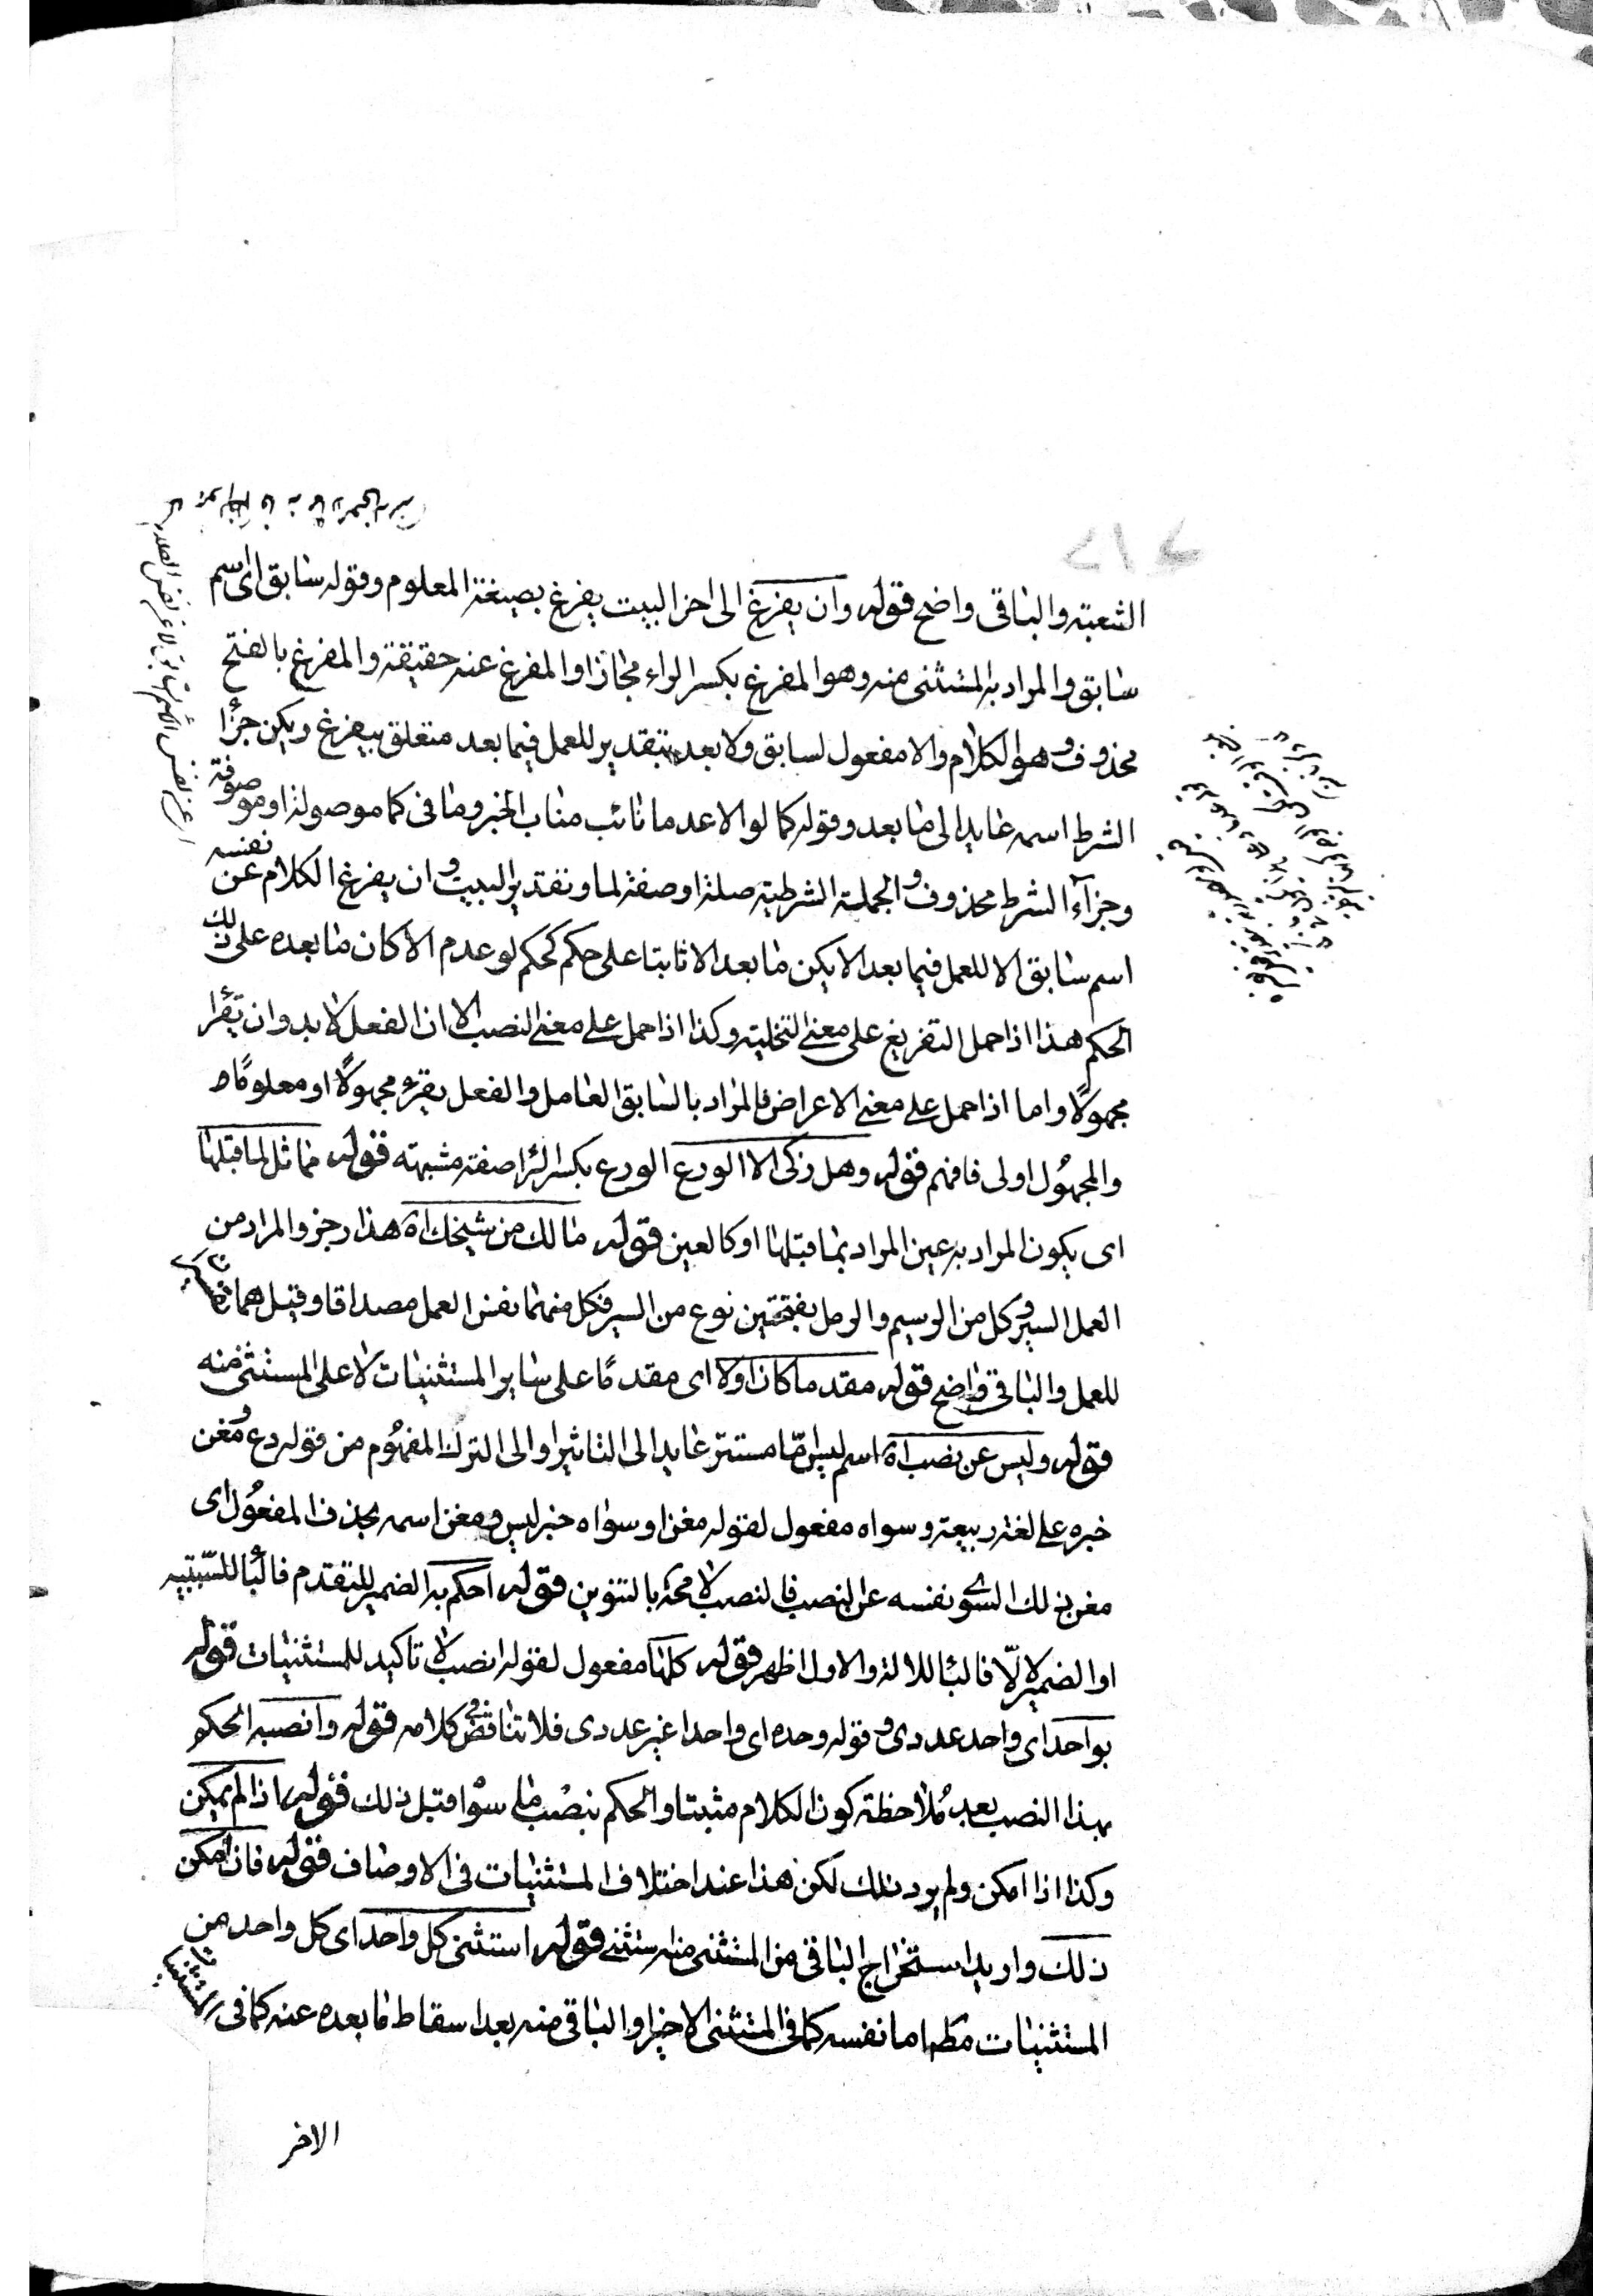 الشعبة والباقى واضح قوله وان يفرغ الى اخر البيت يفرغ بصيغة المعلوم وقوله سابق اى اسم
سابق والمراد به المستثنى منه وهو المفرغ بكسر الراء مجازا والمفرغ عنه حقيقة والمفرغ بالفتح
محذوف وهو الكلام والا مفعول لسابق ولا بعد بتقدير للعمل فيما بعد متعلق بيفرغ ويكن جزأ
الشرط اسمه عايد الى ما بعد وقوله كما لو الا عدما نائب مناب الخبر وما فى كما موصولة او موصوفة
وجزآء الشرط محذوف والجملة الشرطية صلة او صفة لما وتقدير البيت وان يفرغ الكلام عن نفسه
اسم سابق الا للعمل فيما بعد الا يكن ما بعد الا ثابتا على حكم كحكم لو عدم الا كان ما بعده على ذلك
الحكم هذا اذا حمل التفريغ على معنى التخلية وكذا اذا حمل على معنى النصب الا ان الفعل لا بد وان يقرأ
مجهولًا واما اذا حمل على معنى الاعراض فالمراد بالسابق العامل والفعل يقرء مجهولًا او معلومًا
والمجهول اولى فافهم قوله وهل زكى الا الورع الورع بكسر الرا صفة مشبهة قوله مماثل لما قبلها
اى يكون المراد به عين المراد بما قبلها او كالعين قوله مالك من شيخك اه هذا رجز والمراد من
العمل السير وكل من الرسيم والرمل بفتحتين نوع من السير فكل منهما نفس العمل مصداقا وقيل هما
للعمل والباقى واضح قوله مقدما كان اولا اى مقدمًا على ساير المستثنيات لا على المستثنى منه
قوله وليس عن نصب اه اسم ليس مستتر عايد الى التاثير او الى الترك المفهوم من قوله دع ومغن
خبره على لغة ربيعة وسواه مفعول لقوله مغن او سواه خبر ليس ومغن اسمه بحذف المفعول اى
مغن ذلك السوى نفسه عن النصب فالنصب لا محة بالتنوين قوله احكم به الضمير للتقدم فالبا للسببية
او الضمير لالّا فالبا للالة والاول اظهر قوله كلها مفعول لقوله انصب لا تاكيد للمستثنيات قوله
بواحد اى واحد عددى وقوله وحده اى واحدا غير عددى فلا تناقض فى كلامه قوله وانصبه الحكم
بهذا النصب بعد ملاحظة كون الكلام مثبتا والحكم بنصب ما سوا قبل ذلك قوله اذا لم يمكن
وكذا اذا امكن ولم يرد ذلك لكن هذا عند اختلاف المستثنيات فى الاوصاف قوله فان امكن
ذلك واريد استخراج الباقى من المستثنى منه قوله استثنى كل واحد اى كل واحد من
المستثنيات اما نفسه كما فى المستثنى الاخير او الباقى منه بعد اسقاط ما بعده عنه كما فى المستثنيات
الاخر